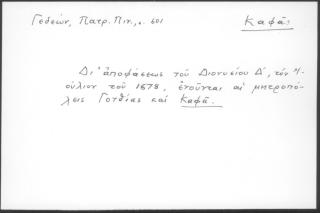 Γεδεών, Πατρ. Πιν., σ. 601
Καφᾶ:
Δι' ἀποφάσεως τοῦ Διονυσίου Δ΄, τὸν Ἰ-
ούλιον τοῦ 1678, ἑνοῦνται αἱ μητροπό-
λεις Γοτθίας καὶ Καφᾶ.